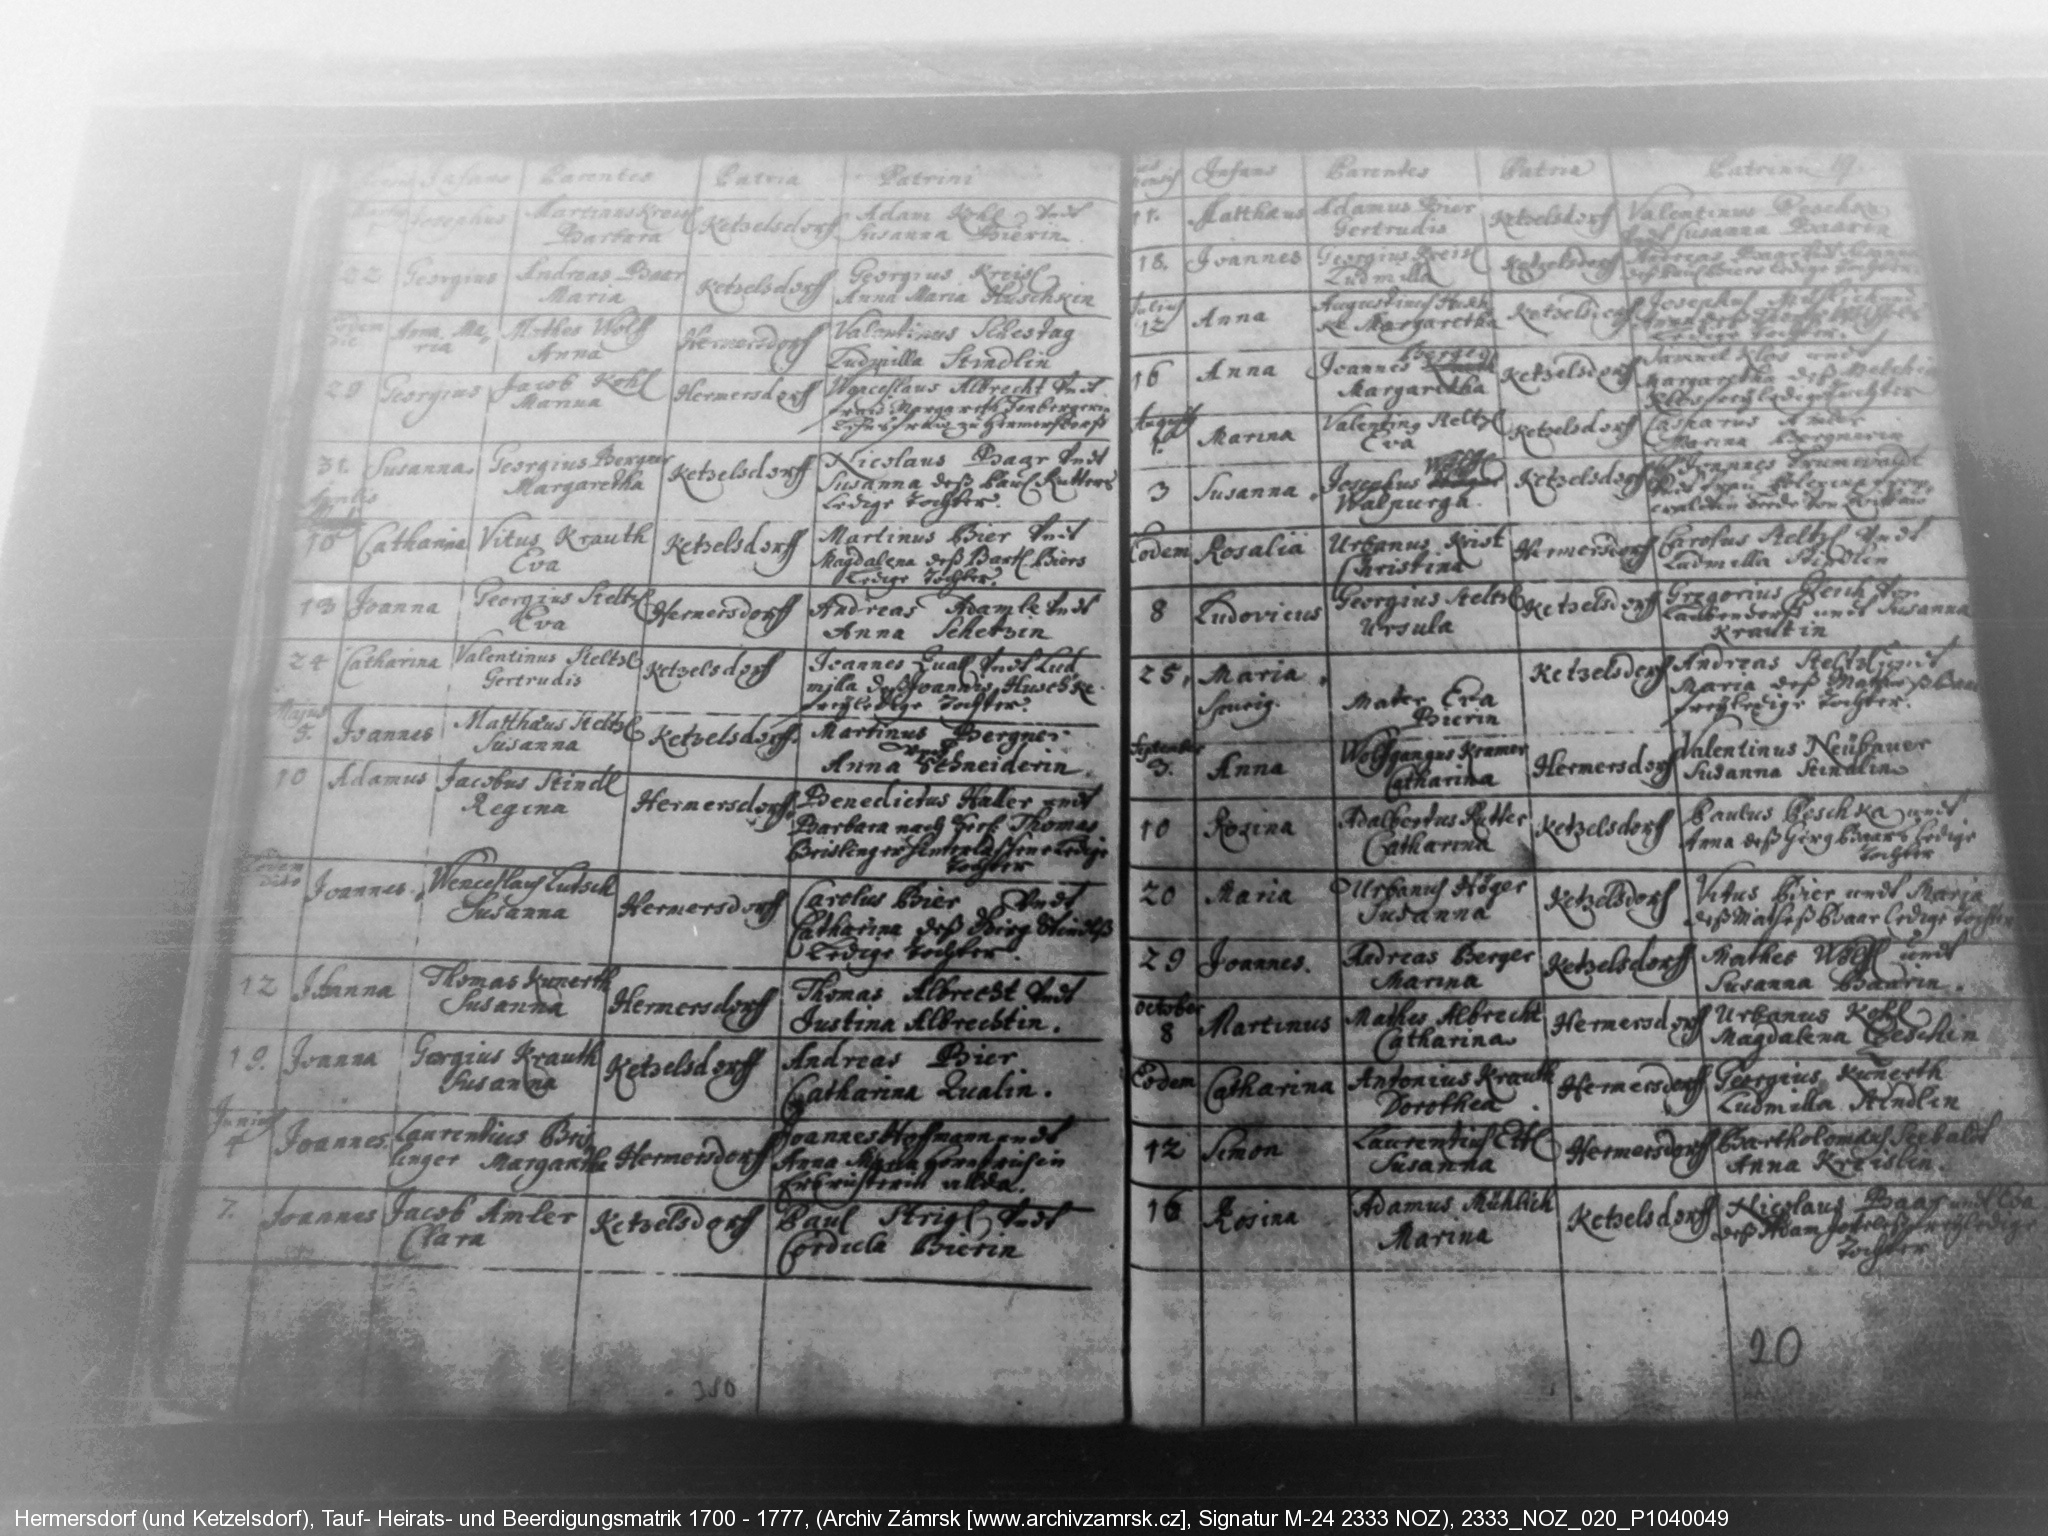 Infans Parentes Patria Patrini
Josephus
Martinus
Barbara
Ketzelsdorff
Adam Kohl Undt
Susanna Bierin
22 Georgius
Andreas Baar
Maria
Ketzelsdorff
Georgius Kreisl
Anna Maria Huschkin
Eodem
die
Anna Ma
ria
Mathes Wolff
Anna
Hermersdorff
Valentinus Schestag
Ludmilla Stindlin
29 Georgius
Jacob Kohl
Marina
Hermersdorff
Wenceslaus Albrecht Undt
31. Susanna
Georgius Bergner
Margaretha
Ketzelsdorff
Nicolaus Baar Undt
Susanna deß Paul Rutters
Ledige Tochter.
Aprilis
10 Catharina
Vitus Krauth
Eva
Ketzelsdorff
Martinus Bier Undt
Magdalena deß Bartl Biers
Ledige Tochter.
13 Joanna
Georgius Steltzl
Eva
Hermersdorff
Andreas Adamle Undt
Anna Schetzin
24 Catharina
Valentinus Steltzl
Gertrudis
Ketzelsdorff
Joannes Quall Undt Lud
milla deß Joannes Huschke
freyledige Tochter.
Majus
5. Joannes
Matthäus Steltzl
Susanna
Ketzelsdorff.
Martinus Bergner
Undt
Anna Schneiderin.
10 Adamus
Jacobus Stindl
Regina
Hermersdorff
Benedictus Haller undt
Barbara nach Thomas
Ledige
Tochter
Eodem
dito
Joannes.
Wenceslaus Lutsch
Susanna
Hermersdorff
Carolus Bier Undt
Catharina deß Görg Stindlß
Ledige Tochter.
12 Joanna
Thomas Kunerth
Susanna
Hermersdorff
Thomas Albrecht Undt
Justina Albrechtin.
19. Joanna
Georgius Krauth
Susanna
Ketzelsdorff
Andreas Bier
Catharina Qualin.
Junius
4 Joannes.
Laurentius Bris
linger Margaretha
Hermersdorff
Joannes Hofmann undt
Anna Maria
7. Joannes
Jacob Amler
Clara
Ketzelsdorff
Paul Strigl Undt
Cordula Bierin
380
Infans Parentes Patria Patrini 19.
11. Matthäus
Adamus Bier
Gertrudis
Ketzelsdorff
Valentinus Peschka
Undt Susanna Baarin
18. Joannes
Georgius Kreisl
Ludmilla
Ketzelsdorff
Julius
12 Anna
Augustinus Husch
ke Margaretha
Ketzelsdorff
Ledige Tochter.
16 Anna
Berger
Joannes
Margaretha
Ketzelsdorff
Samuel Klos undt
Margaretha deß Melchior
August
1. Marina
Valentinus Steltzl
Eva
Ketzelsdorff
Casparus Amler
Marina Bergnerin
3 Susanna.
Wolff
Josephus
Walpurga.
Ketzelsdorff
Joannes
Eodem Rosalia
Urbanus Krist
Christina
Hermersdorff
Carolus Steltzl Undt
Ludmilla Stindlin
8 Ludovicus
Georgius Steltzl
Ursula
Ketzelsdorff
Gregorius Von
undt Susanna
Krautin
25, Maria,
Spurig.
Mater Eva
Bierin
Ketzelsdorff
Andreas Steltzl undt
Maria deß
freyledige Tochter.
September
3. Anna
Wolffgangus Kramer
Catharina
Hermersdorff
Valentinus Neübauer
Susanna Stindlin
10 Rosina
Adalbertus Rutter
Catharina
Ketzelsdorff
Paulus Peschka undt
Anna deß Görg Baars Ledige
Tochter
20 Maria
Urbanus Höger
Susanna
Ketzelsdorff
Vitus Bier undt Maria
deß Matheß Baar ledige Tochter
29 Joannes.
Andreas Berger
Marina
Ketzelsdorff
Mathes Wolff undt
Susanna Baarin.
October
8 Martinus
Mathes Albrecht
Catharina.
Hermersdorff
Urbanus Kohl
Magdalena Peschin
Eodem Catharina
Antonius Krauth
Dorothea.
Hermersdorff
Georgius Kunerth
Ludmilla Stindlin
12 Simon
Laurentius Ettl
Susanna
Hermersdorff
Bartholomäus Seebaldt
Anna Kreislin.
16 Rosina
Adamus Mühlich
Marina
Ketzelsdorff
Nicolaus Baar undt Eva
deß Adam freyledige
Tochter
20
Hermersdorf (und Ketzelsdorf), Tauf- Heirats- und Beerdigungsmatrik 1700 - 1777, (Archiv Zámrsk [www.archivzamrsk.cz], Signatur M-24 2333 NOZ), 2333_NOZ_020_P1040049